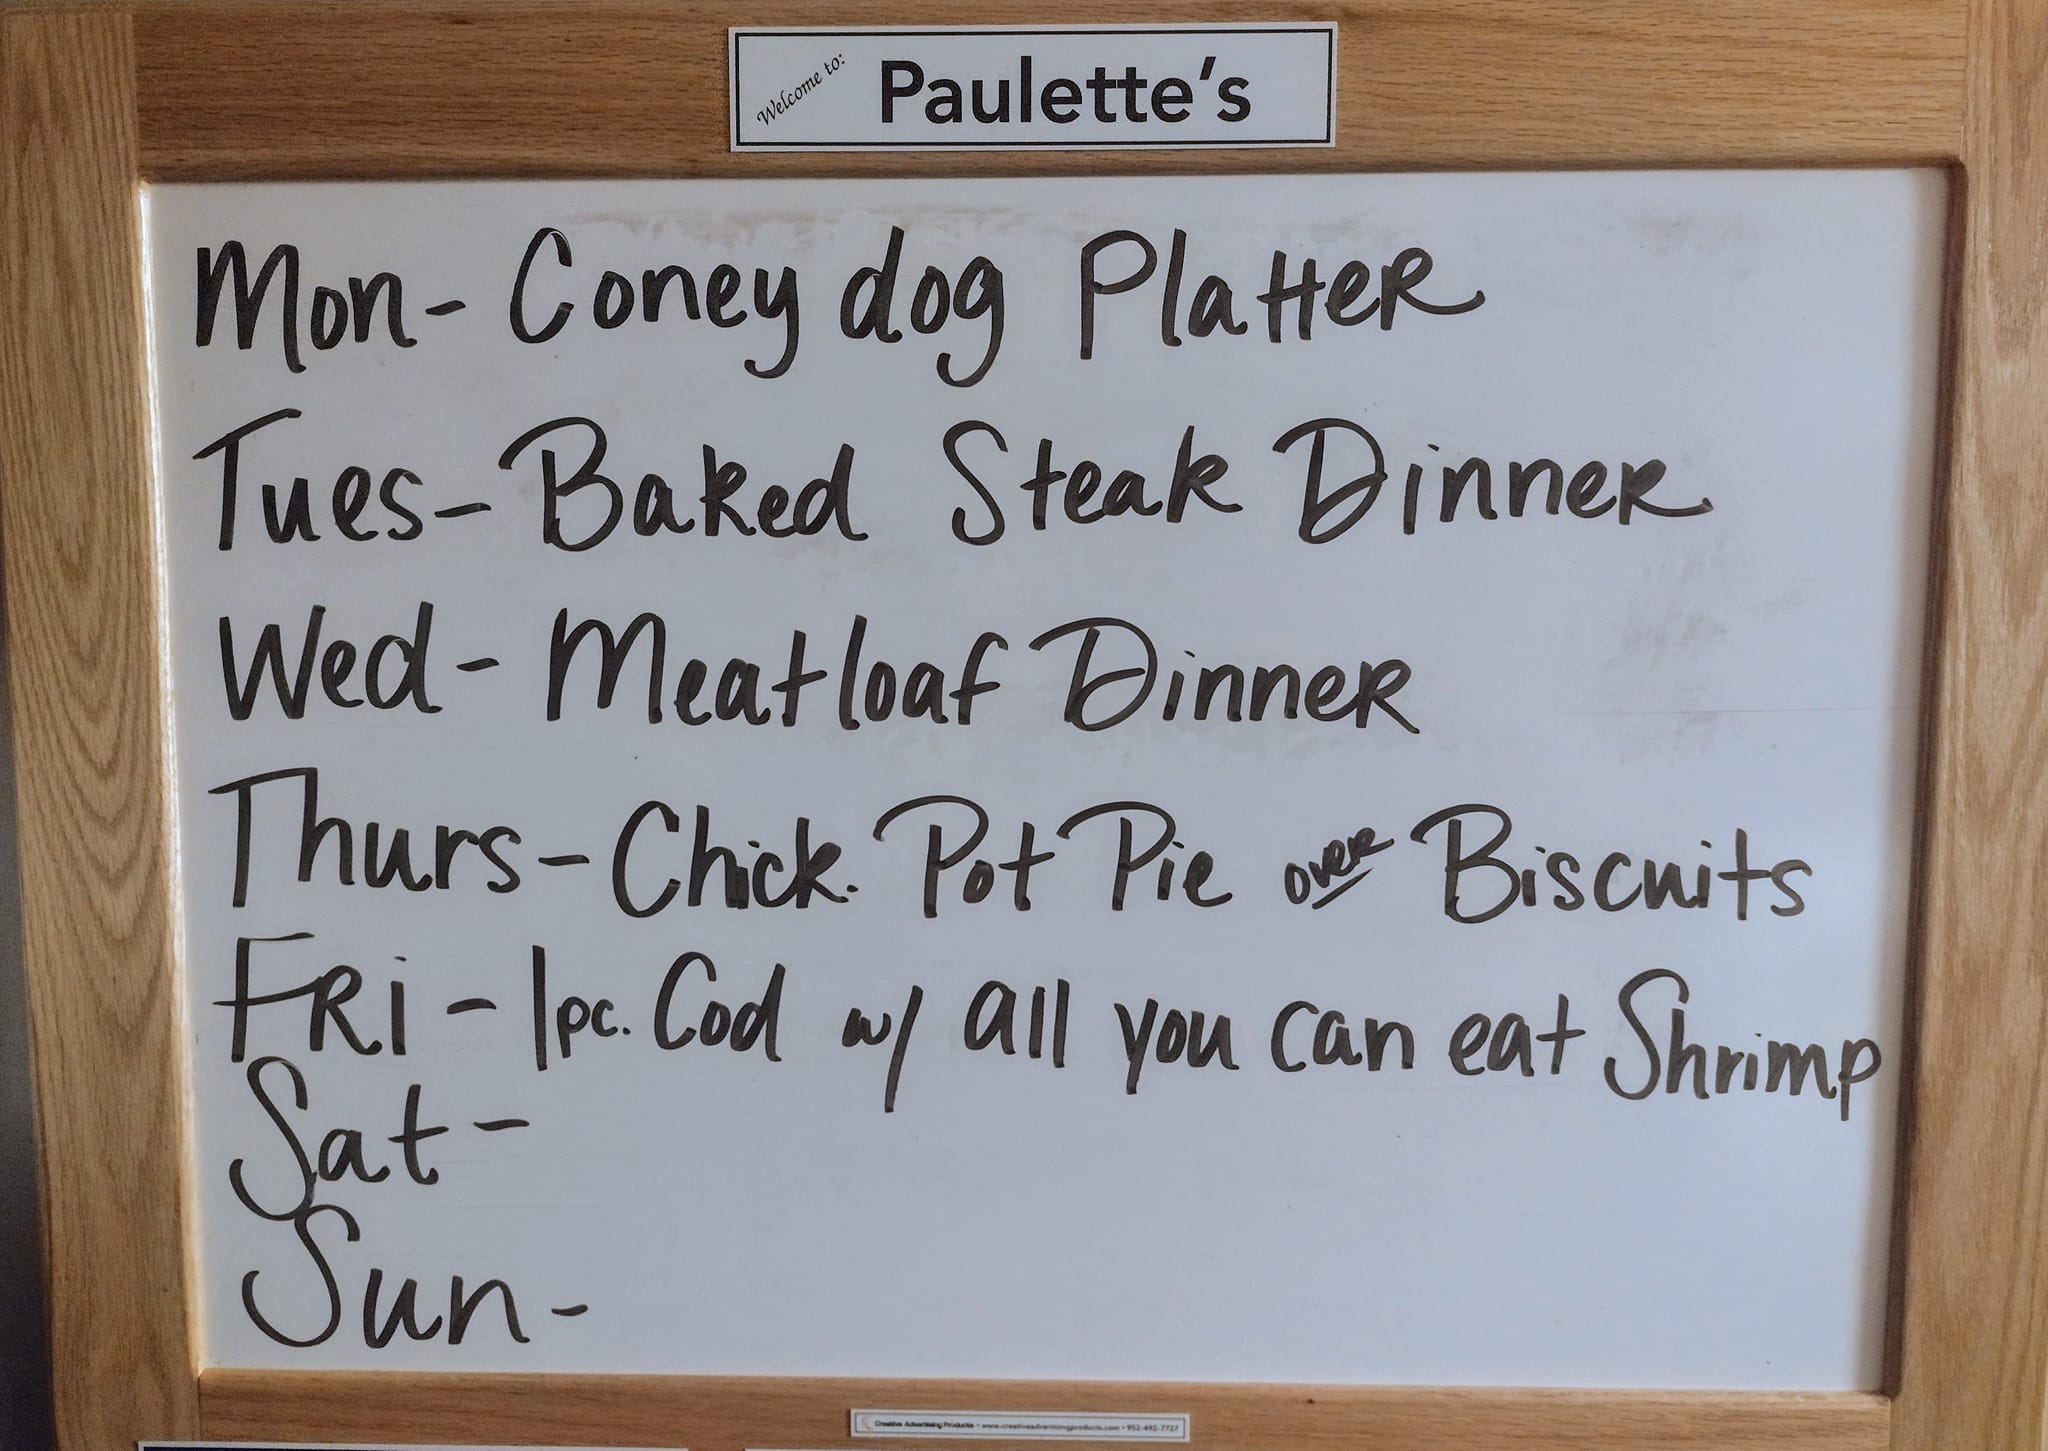 Welcome to: Paulette's
Mon- Coney dog Platter
Tues- Baked Steak Dinner
Wed- Meatloaf Dinner
Thurs- Chick. Pot Pie over Biscuits
FRi- 1pc. Cod w/ all you can eat Shrimp
Sat-
Sun-
Creative Advertising Products • www.creativeadvertisingproducts.com • 952-492-7727